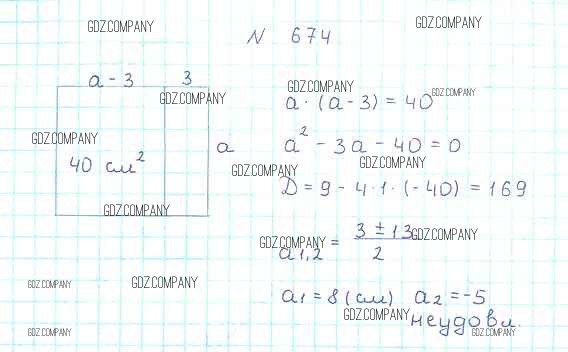 GDZ.COMPANY
GDZ.COMPANY
N 674
a - 3 3
GDZ.COMPANY
GDZ.COMPANY
GDZ.COMPANY
a · (a - 3) = 40
GDZ.COMPANY
a
a² - 3a - 40 = 0
40 см²
GDZ.COMPANY
GDZ.COMPANY
D = 9 - 4·1·(-40) = 169
GDZ.COMPANY
GDZ.COMPANY
GDZ.COMPANY
a1,2 = 3 ± 13
2
GDZ.COMPANY
GDZ.COMPANY
a1 = 8 (см) a2 = -5
GDZ.COMPANY
неудовл.
GDZ.COMPANY
GDZ.COMPANY